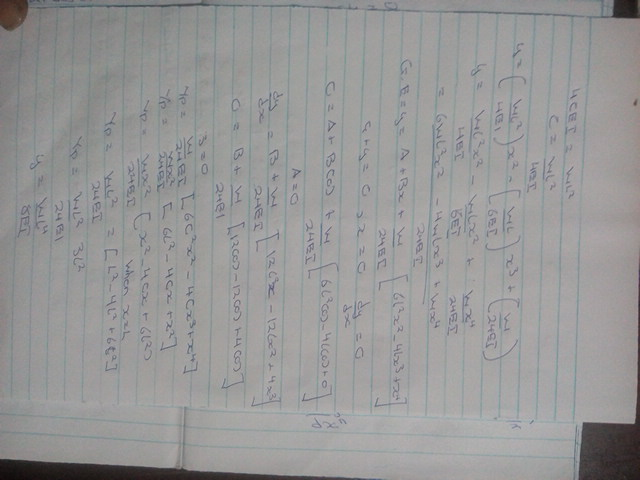 4CEI = WL²
C = WL² / 4EI
y = (WL² / 4EI) x² - [WL / 6EI] x³ + (W / 24EI)
y = WL²x² / 4EI - WLx³ / 6EI + Wx⁴ / 24EI
= 6WL²x² - 4WLx³ + Wx⁴ / 24EI
G.E = y = A + Bx + W / 24EI [6L²x² - 4Lx³ + x⁴]
y = 0 , x = 0 dy/dx = 0
0 = A + B(0) + W / 24EI [6L²(0) - 4L(0) + 0]
A = 0
dy/dx = B + W / 24EI [12L²x - 12Lx² + 4x³]
0 = B + W / 24EI [12(0) - 12(0) + 4(0)]
B = 0
yp = W / 24EI [6L²x² - 4Lx³ + x⁴]
yp = Wx² / 24EI [6L² - 4Lx + x²]
yp = WL² / 24EI (x² - 4Lx + 6L²)
When x = L
yp = WL² / 24EI = [L² - 4L² + 6L²]
yp = WL² / 24EI 3L²
y = WL⁴ / 8EI